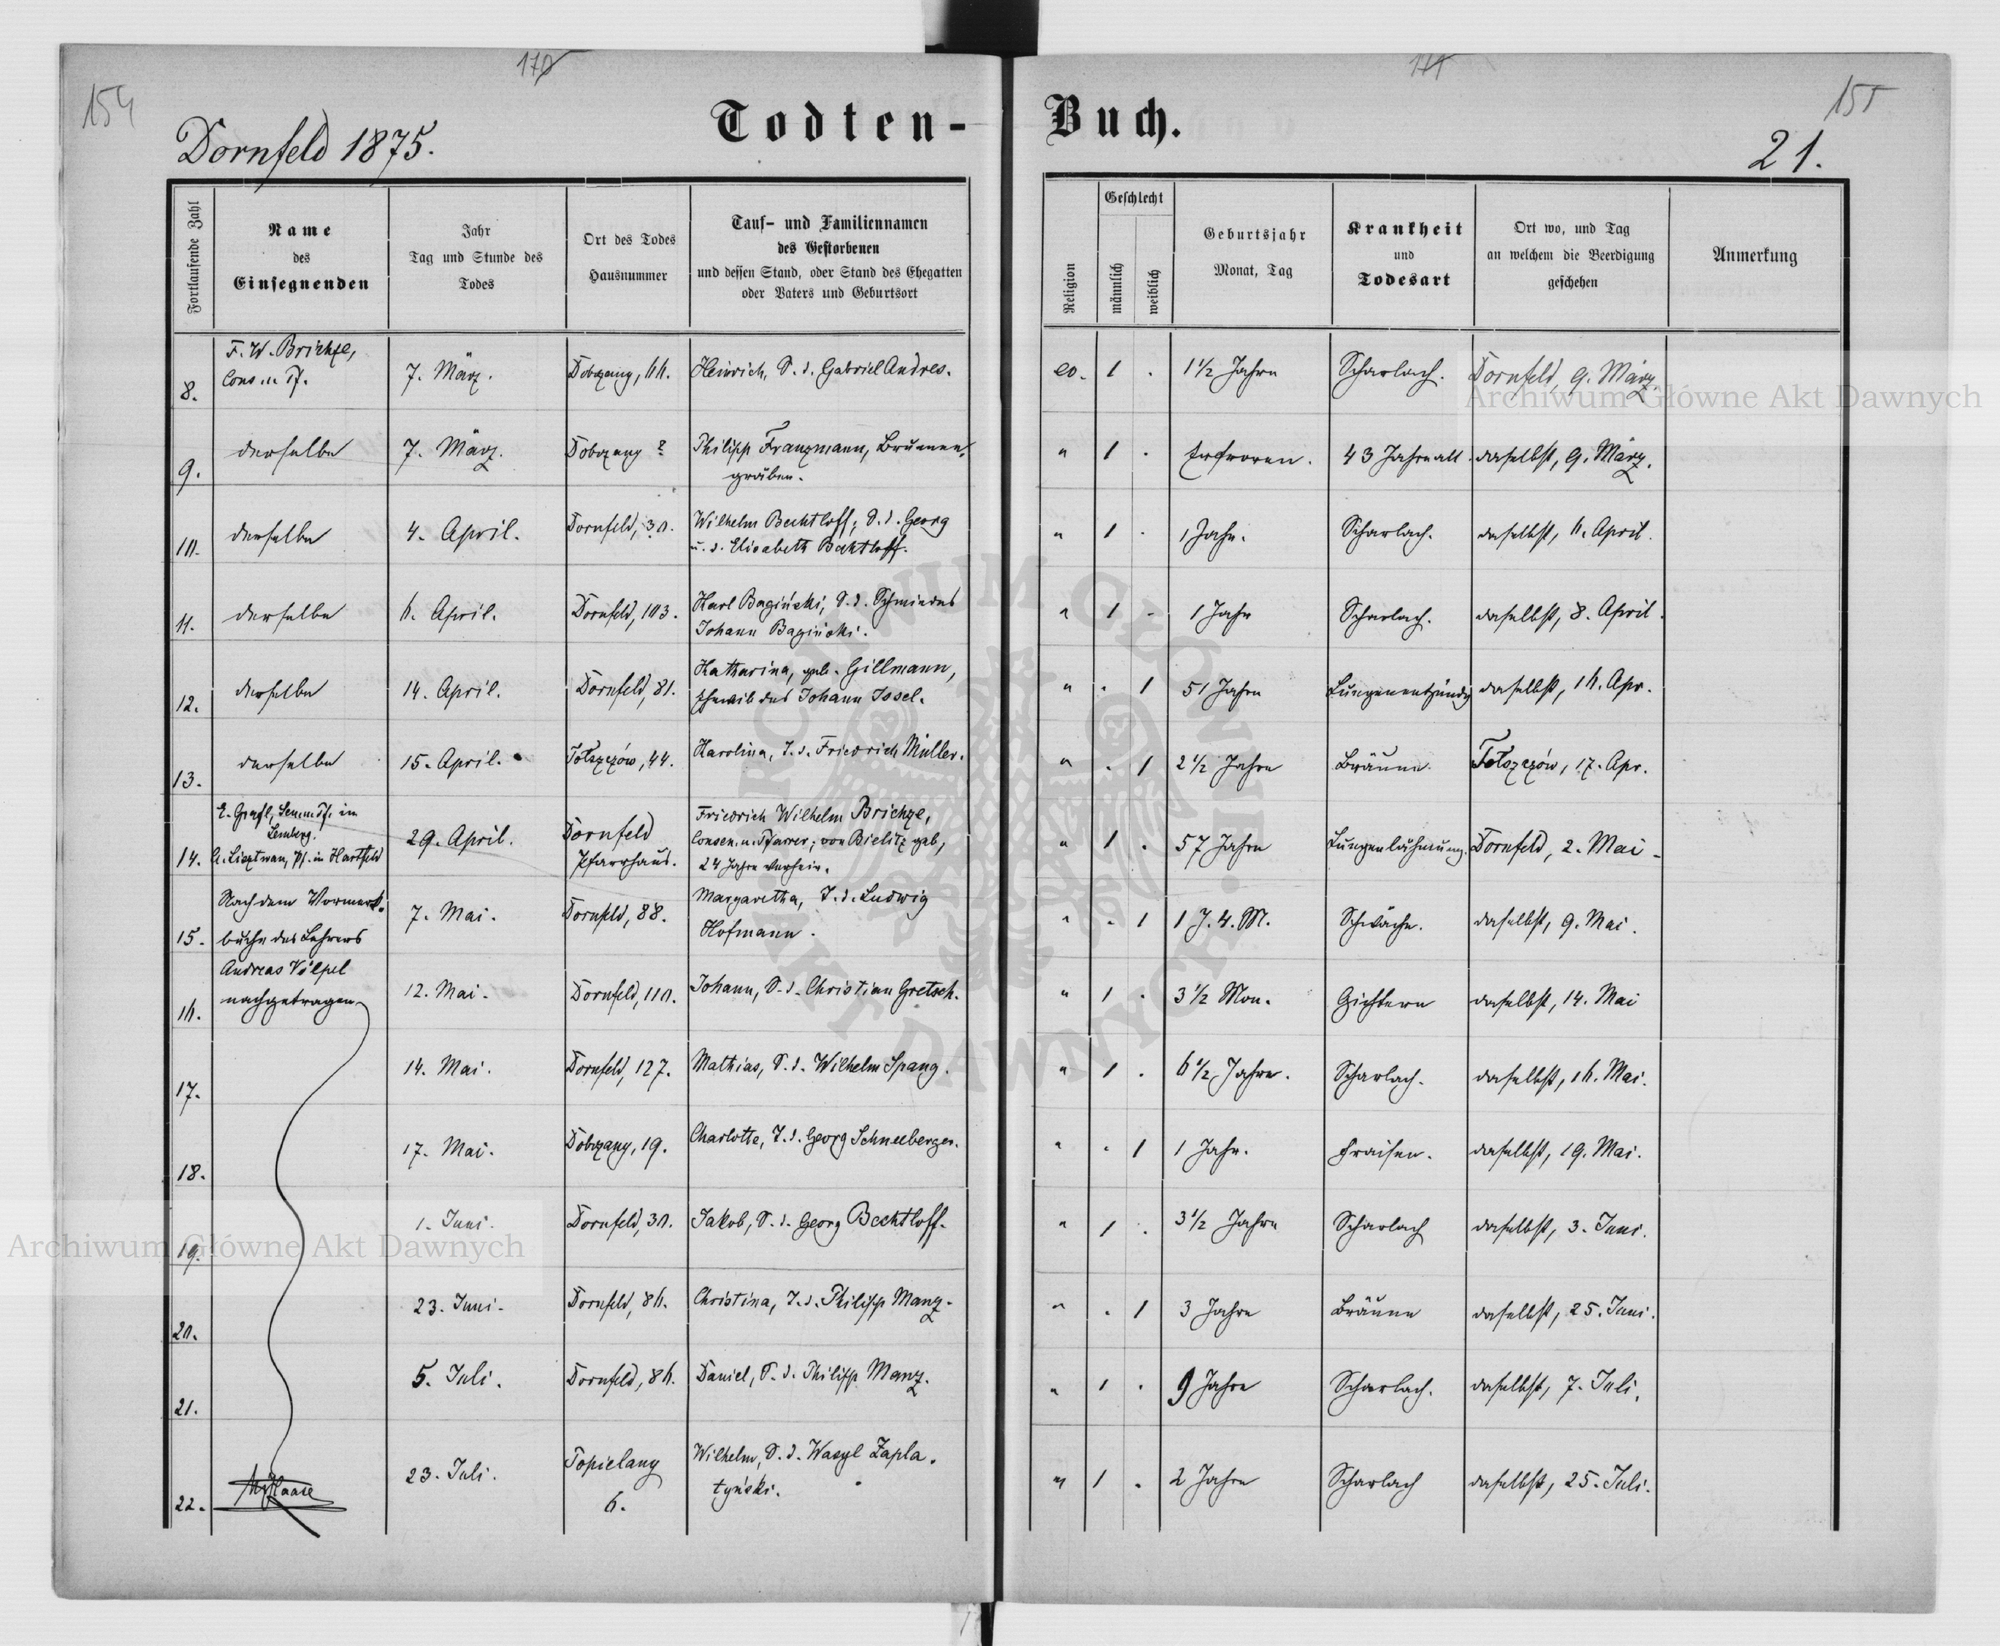 154
170
171
155
Dornfeld 1875.
Todten-
Buch.
21.
Fortlaufende Zahl
Name
des
Einsegnenden
Jahr
Tag und Stunde des
Todes
Ort des Todes
Hausnummer
Tauf- und Familiennamen
des Gestorbenen
und dessen Stand, oder Stand des Ehegatten
oder Vaters und Geburtsort
Religion
Geschlecht
männlich
weiblich
Geburtsjahr
Monat, Tag
Krankheit
und
Todesart
Ort wo, und Tag
an welchem die Beerdigung
geschehen
Anmerkung
8.
F. W. Brichze,
Cons. u. Pf.
7. März.
Dobrzany, 66.
Heinrich, S. d. Gabriel Andres.
ev. 1 .
1 1/2 Jahre
Scharlach.
Dornfeld, 9. März.
9.
derselbe
7. März.
Dobrzany ?
Philipp Franzmann, Brunnen-
gräber.
" 1 .
Erfroren.
43 Jahre alt.
daselbst, 9. März.
10.
derselbe
4. April.
Dornfeld, 30.
Wilhelm Bechtloff, S. d. Georg
u. d. Elisabeth Bechtloff.
" 1 .
1 Jahr.
Scharlach.
daselbst, 6. April.
11.
derselbe
6. April.
Dornfeld, 103.
Karl Bagiński, S. d. Schmiedes
Johann Bagiński.
" 1 -
1 Jahr
Scharlach.
daselbst, 8. April.
12.
derselbe
14. April.
Dornfeld, 81.
Katharina, geb. Gillmann,
Eheweib des Johann Issel.
" . 1
51 Jahre
Lungenentzündg
daselbst, 16. Apr.
13.
derselbe
15. April.
Tołszczów, 44.
Karolina, T. d. Friedrich Müller.
" . 1
2 1/2 Jahre
Bräune.
Tołszczów, 17. Apr.
14.
Lemberg.
Pf. in Hartfeld
29. April.
Dornfeld
Pfarrhaus.
Friedrich Wilhelm Brichze,
Consen. u. Pfarrer, von Bielitz geb,
24 Jahre
" 1 .
57 Jahre
Lungenlähmung.
Dornfeld, 2. Mai -
15.
Nach dem Vormerk-
buche des Lehrers
7. Mai.
Dornfeld, 88.
Margaretha, T. d. Ludwig
Hofmann.
" . 1
1 J. 4. M.
Schwäche.
daselbst, 9. Mai.
16.
Andreas Völpel
nachgetragen
12. Mai.
Dornfeld, 110.
Johann, S. d. Christian Gretsch.
" 1 .
3 1/2 Mon.
Gichtern
daselbst, 14. Mai
17.
14. Mai.
Dornfeld, 127.
Mathias, S. d. Wilhelm Spang.
" 1 .
6 1/2 Jahre.
Scharlach.
daselbst, 16. Mai.
18.
17. Mai.
Dobrzany, 19.
Charlotte, T. d. Georg Schneeberger.
" . 1
1 Jahr.
Fraisen.
daselbst, 19. Mai.
19.
1. Juni.
Dornfeld, 30.
Jakob, S. d. Georg Bechtloff.
" 1 .
3 1/2 Jahre
Scharlach
daselbst, 3. Juni.
20.
23. Juni.
Dornfeld, 86.
Christina, T. d. Philipp Manz.
" . 1
3 Jahre
Bräune
daselbst, 25. Juni.
21.
5. Juli.
Dornfeld, 86.
Daniel, S. d. Philipp Manz.
" 1 .
9 Jahre
Scharlach.
daselbst, 7. Juli.
22.
Haase
23. Juli.
Topielany
6.
Wilhelm, S. d. Wasyl Zapla-
tyński.
" 1 .
2 Jahre
Scharlach
daselbst, 25. Juli.
Archiwum Główne Akt Dawnych
Archiwum Główne Akt Dawnych
ARCHIWUM GŁÓWNE AKT DAWNYCH